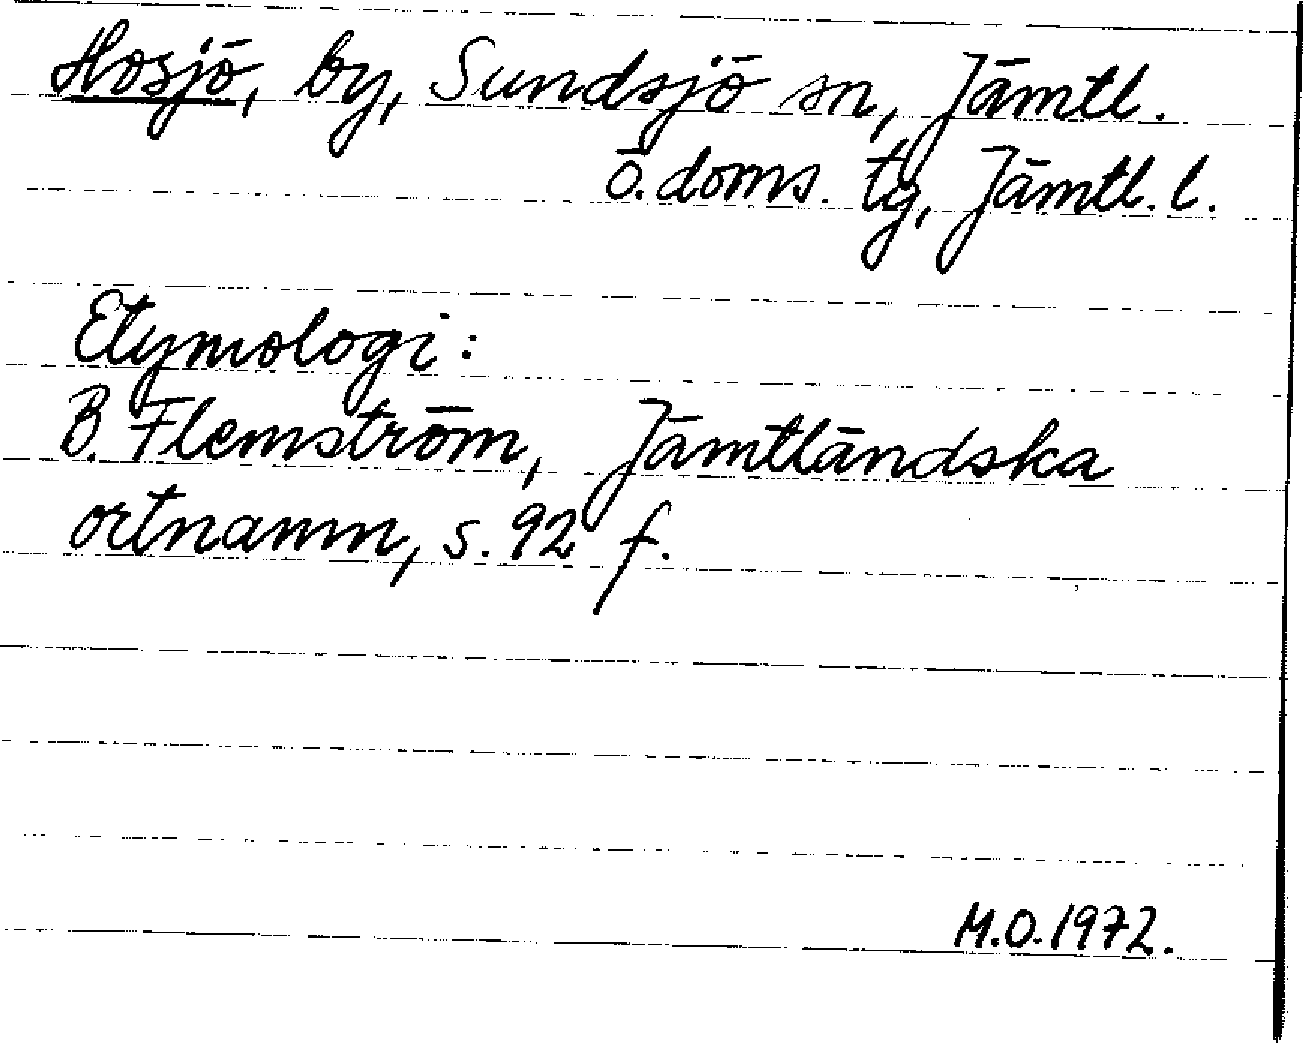 Hosjö, by, Sundsjö sn, Jämtl.
ö. doms. tg, Jämtl. l.
Etymologi:
B. Flemström, Jämtländska
ortnamn, s. 92 f.
M.O. 1972.